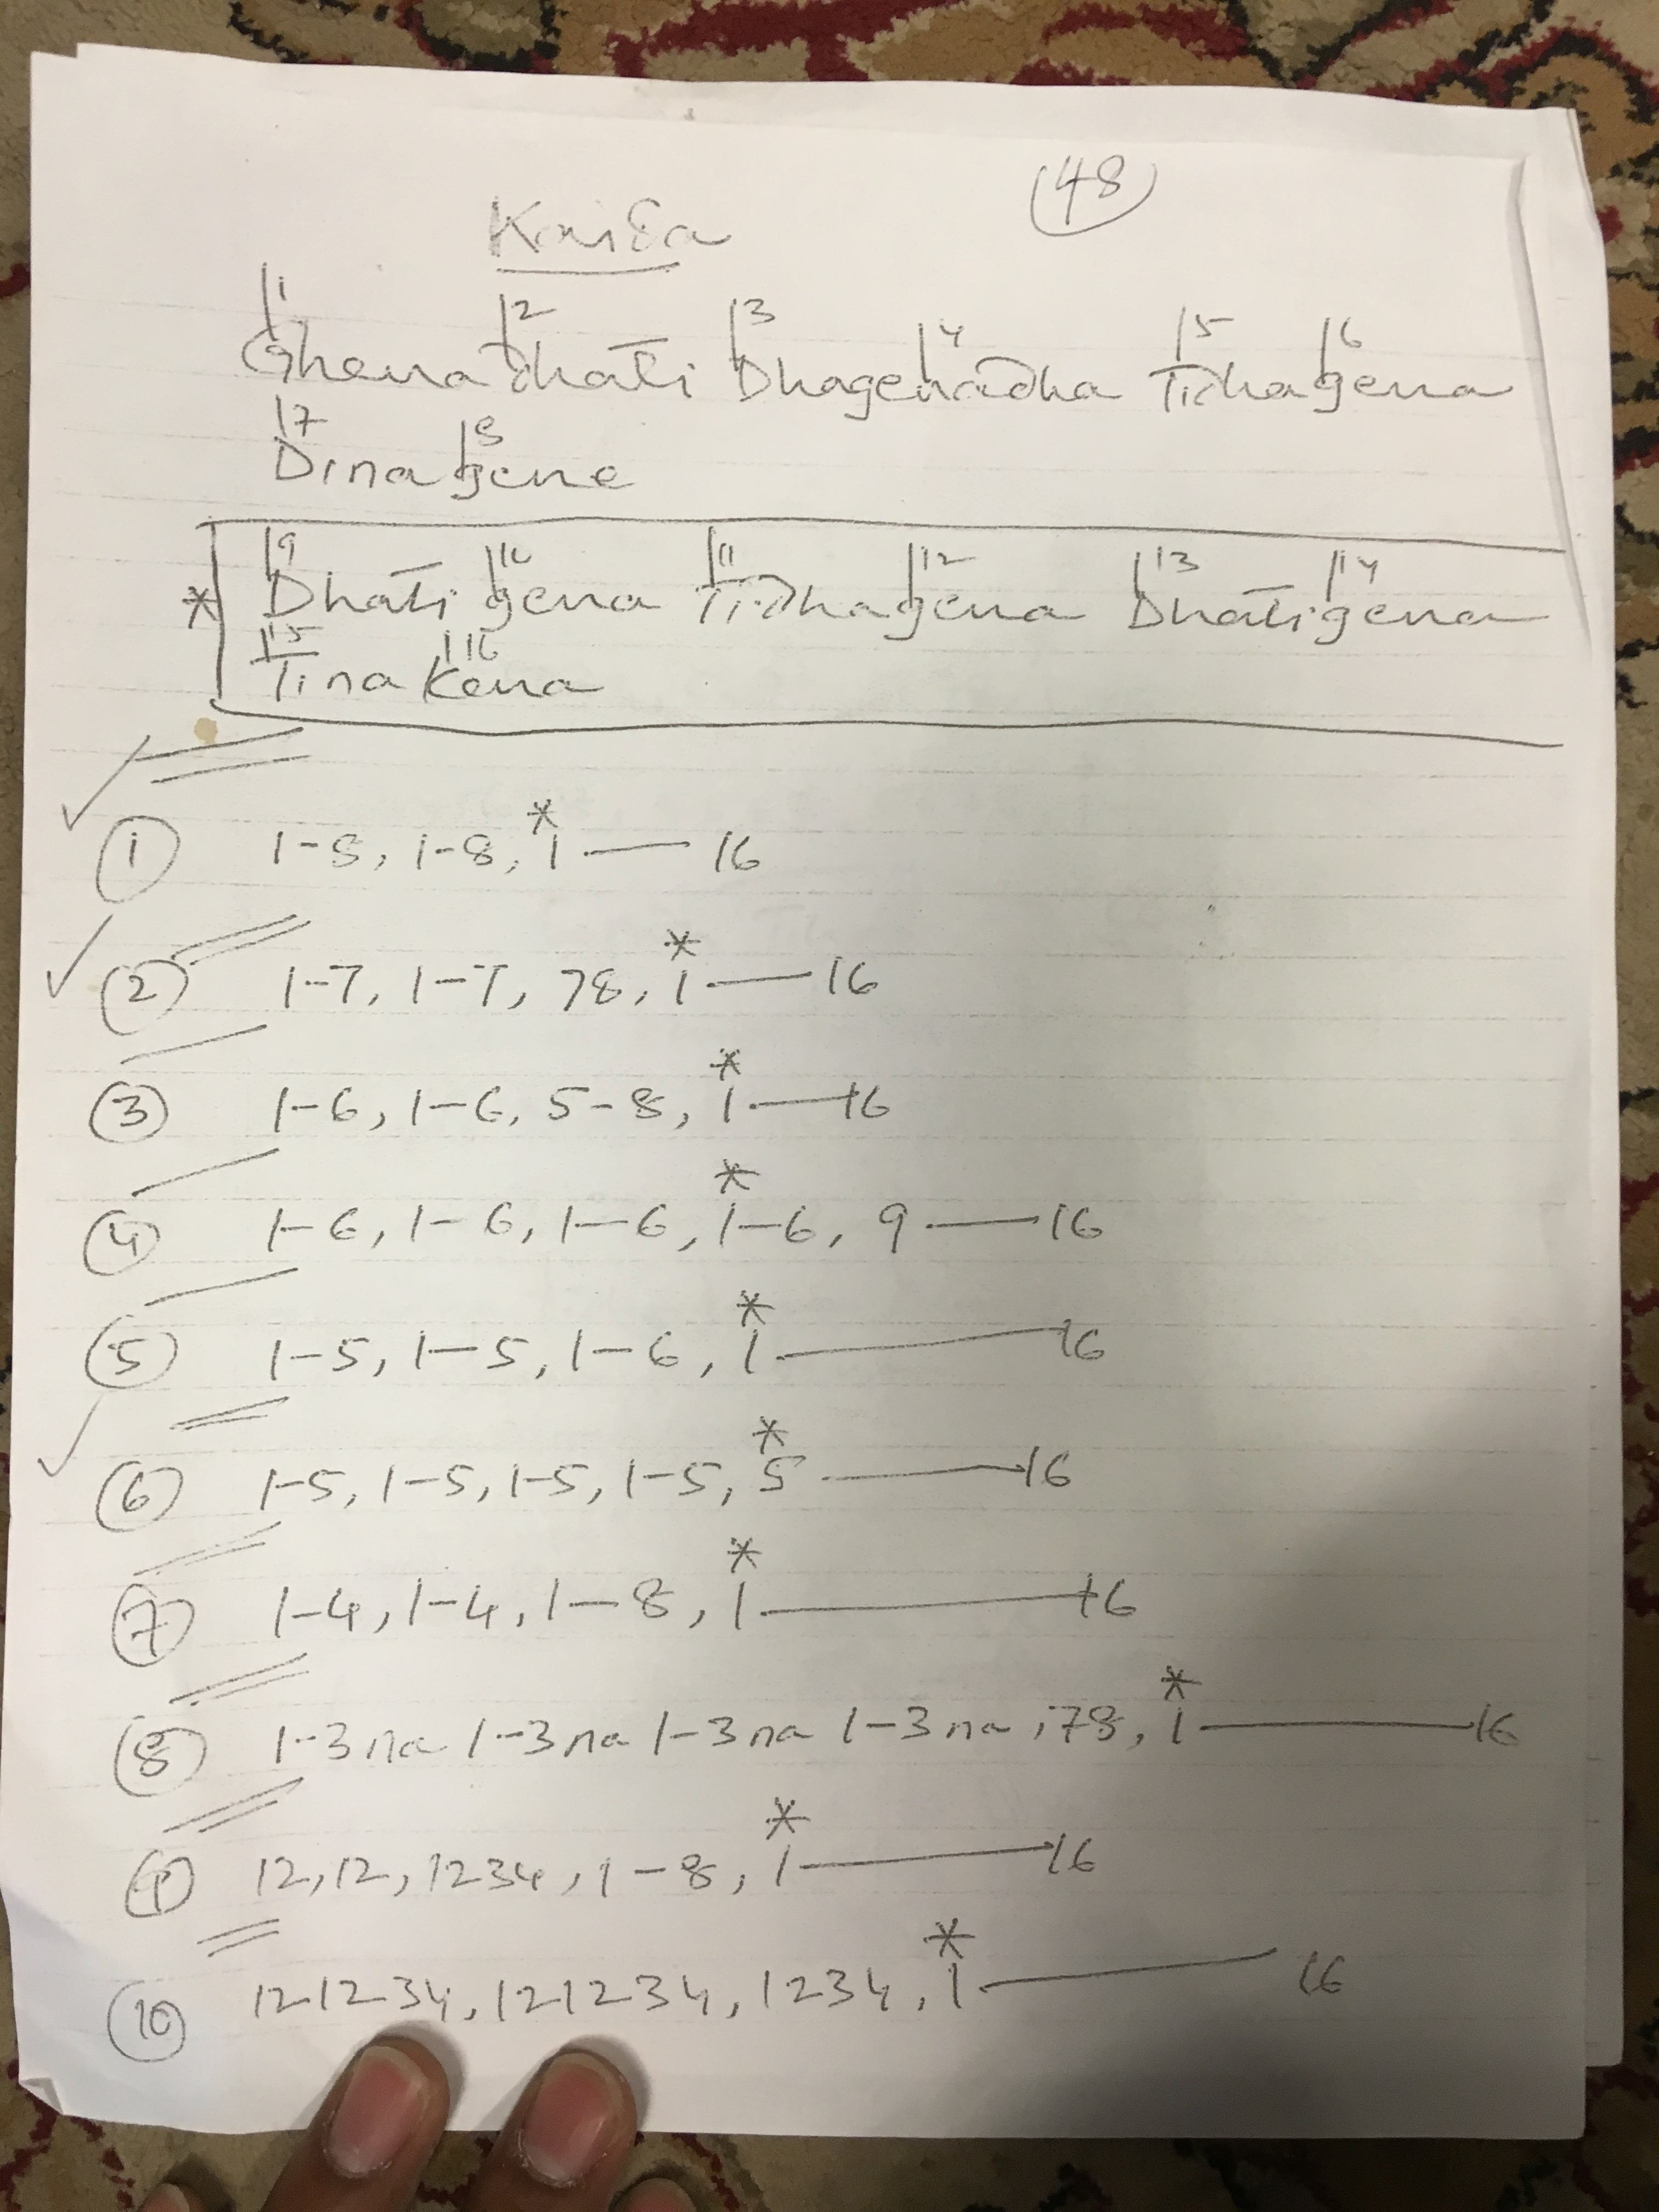 Kaida
48
1 2 3 4 5 6
Ghenadhāti Dhagenadha Tidhagena
7 8
Dinagene
9 10 11 12 13 14
* Dhāti gena Tidhagena Dhātigena
15 16
Tinakena
*
1 1-8, 1-8, 1 — 16
*
2 1-7, 1-7, 78, 1 — 16
*
3 1-6, 1-6, 5-8, 1 — 16
*
4 1-6, 1-6, 1-6, 1-6, 9 — 16
*
5 1-5, 1-5, 1-6, 1 — 16
*
6 1-5, 1-5, 1-5, 1-5, 5 — 16
*
7 1-4, 1-4, 1-8, 1 — 16
*
8 1-3 na 1-3 na 1-3 na 1-3 na, 78, 1 — 16
*
9 12, 12, 1234, 1-8, 1 — 16
*
10 121234, 121234, 1234, 1 — 16